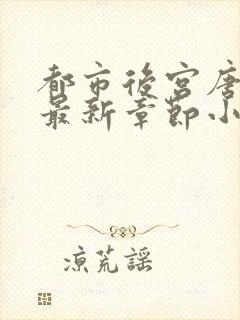 都市後宮唐
最新章節小
涼荒謠